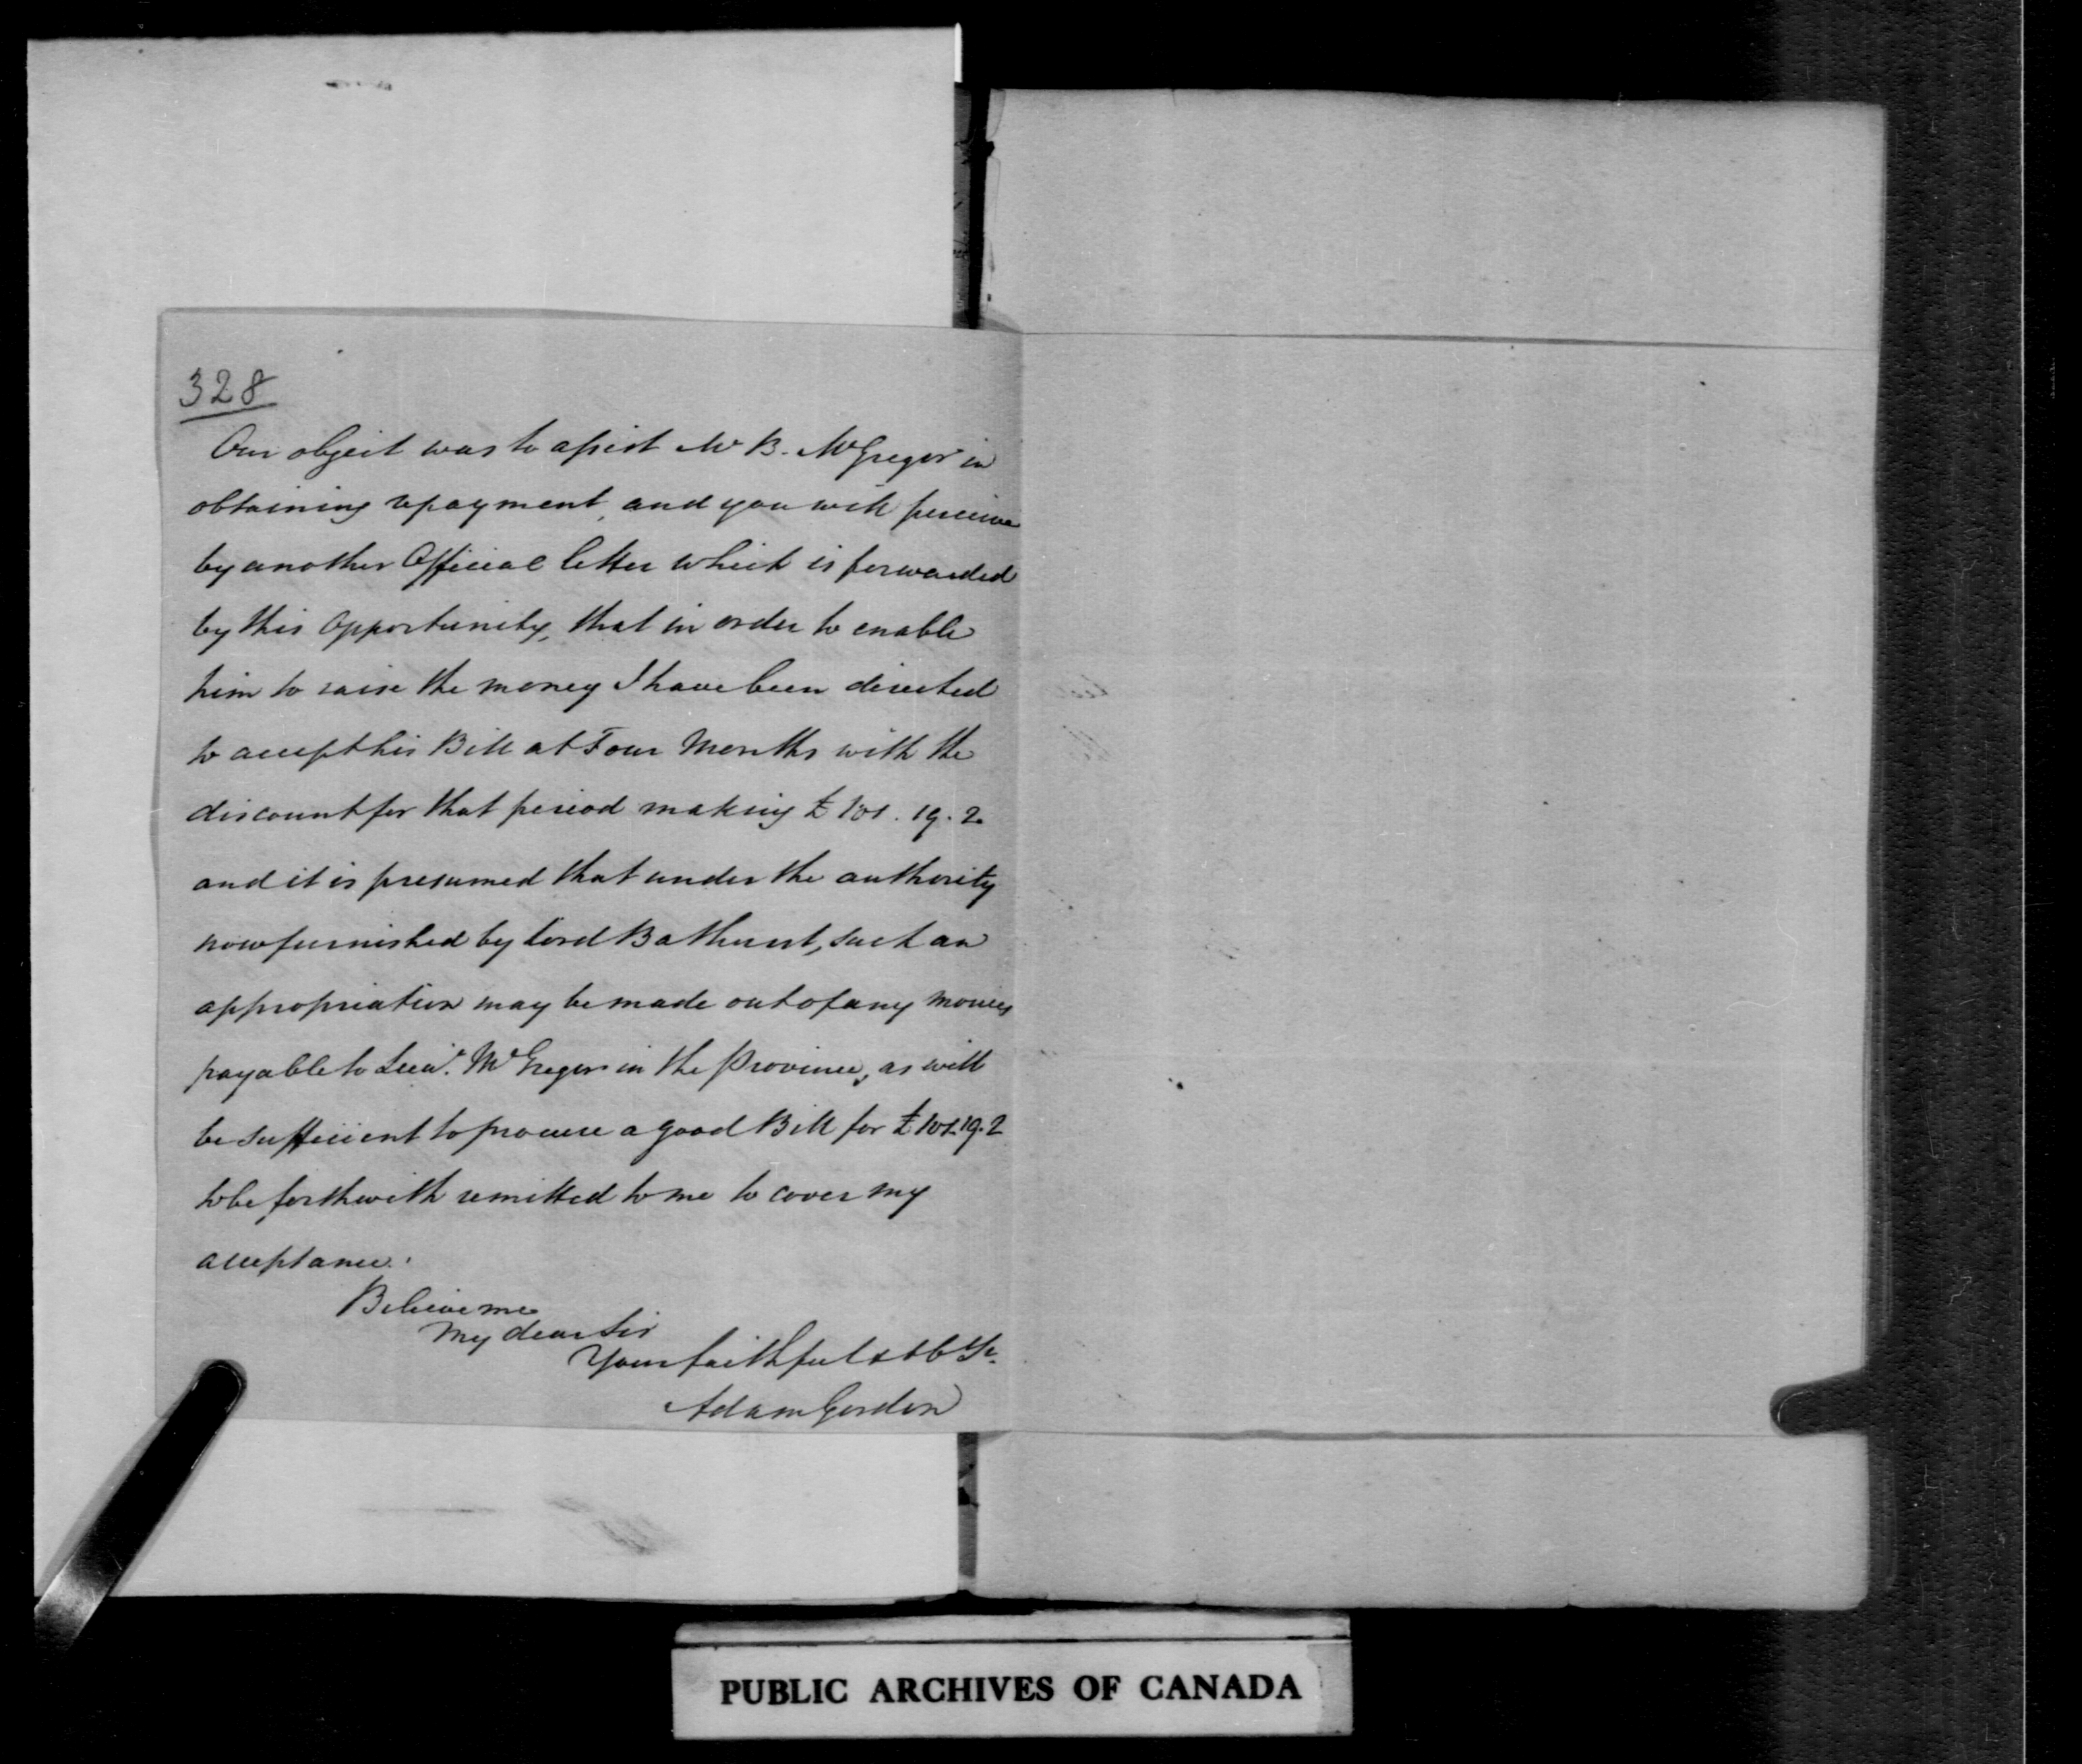 328
Our object was to assist Mr B. McGregor in
obtaining repayment, and you will perceive
by another Official letter which is forwarded
by this Opportunity, that in order to enable
him to raise the money I have been directed
to accept his Bill at Four Months with the
discount for that period making £101.19.2
and it is presumed that under the authority
now furnished by Lord Bathurst, such an
appropriation may be made out of any monies
payable to Lieut. McGregor in the Province, as will
be sufficient to procure a good Bill for £101.19.2
to be forthwith remitted to me to cover my
acceptance.
Believe me
My dear Sir
Your faithful
Adam Gordon
PUBLIC ARCHIVES OF CANADA